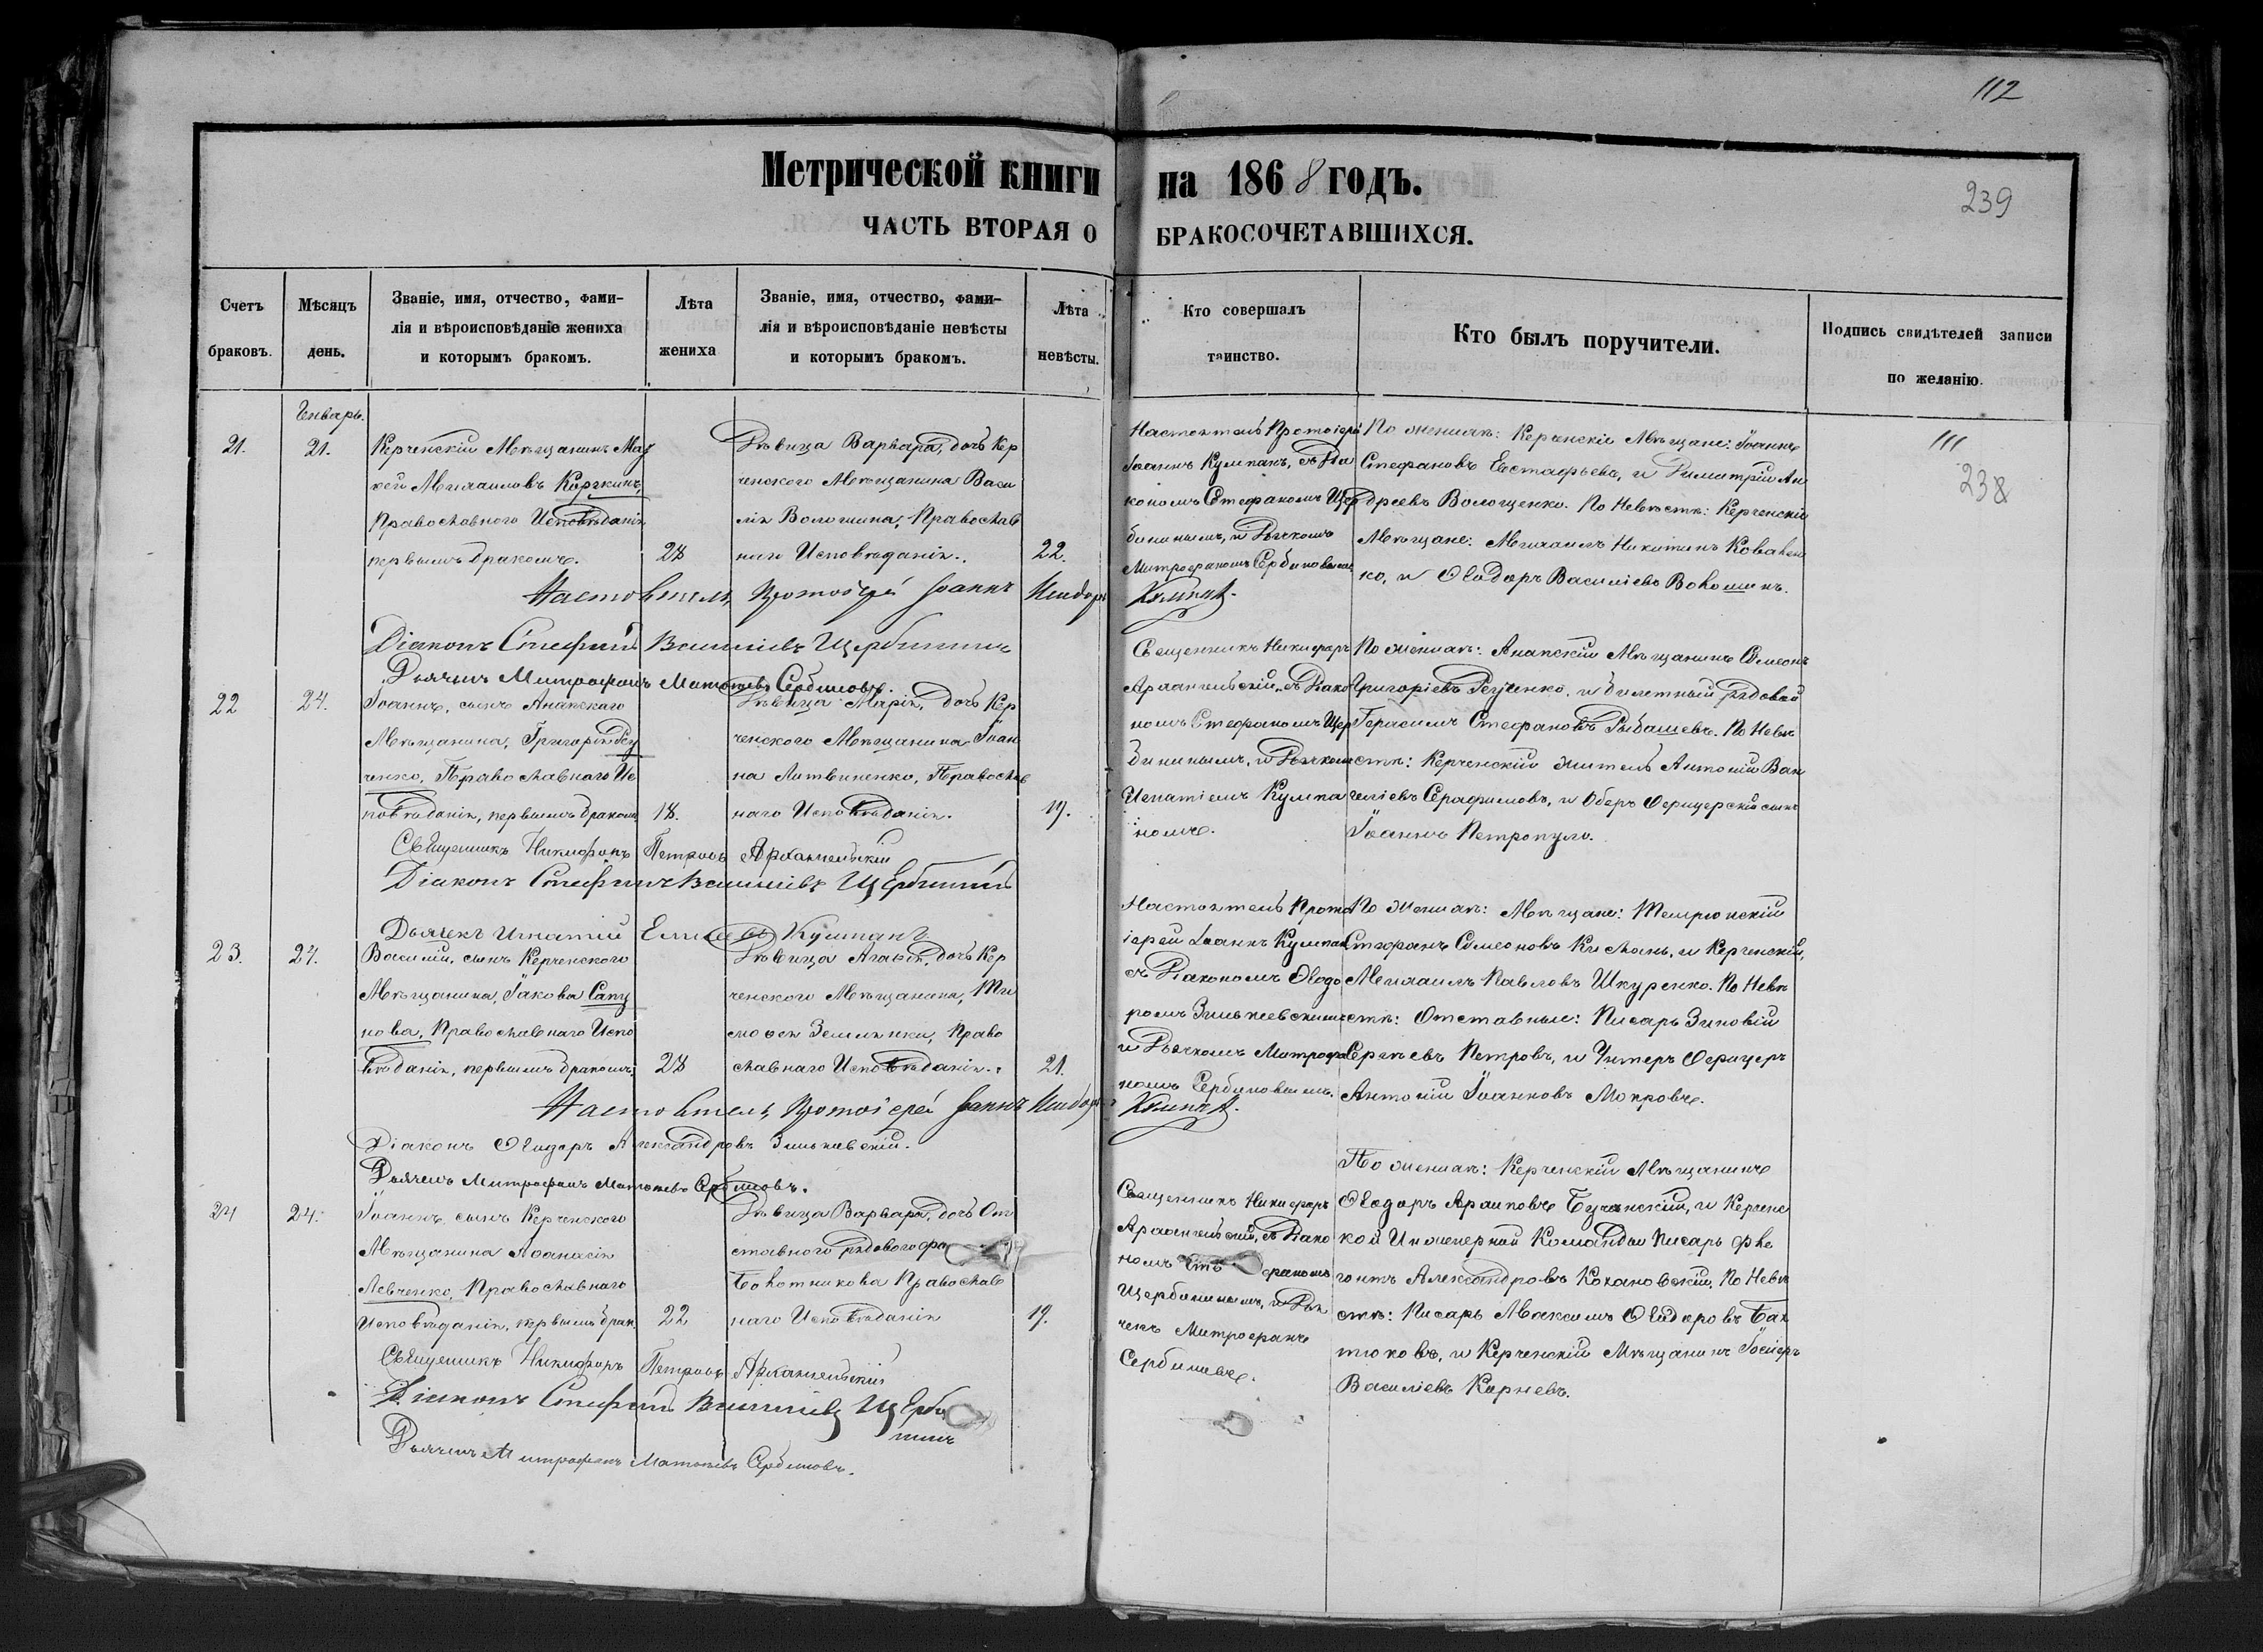 112
Метрической книги на 1868 годъ.
239
ЧАСТЬ ВТОРАЯ О БРАКОСОЧЕТАВШИХСЯ.
Счетъ браковъ.
Мѣсяцъ день.
Званіе, имя, отчество, фами-
лія и вѣроисповѣданіе жениха
и которымъ бракомъ.
Лѣта жениха
Званіе, имя, отчество, фами-
лія и вѣроисповѣданіе невѣсты
и которымъ бракомъ.
Лѣта невѣсты.
Кто совершалъ
таинство.
Кто былъ поручители.
Подпись свидѣтелей записи
по желанію.
Январь.
21.
21.
Керченскій Мѣщанинъ
Михаиловъ
Православнаго Исповѣданія
первымъ бракомъ.
28
Дѣвица Варвара, дочь Кер
ченского Мѣщанина Васи
лія Волошина, Православ
наго Исповѣданія.
22.
Настоятель Протоіерей
Іоаннъ Кумпанъ, съ Діа
кономъ Стефаномъ Щер
бининымъ, и Дьячкомъ
Митрофаномъ Сербиновымъ
По женихѣ: Керченскіе Мѣщане: Іоаннъ
Стефановъ Евстафьевъ, и Димитрій Ан
дреевъ Волощенко. По Невѣстѣ: Керченскіе
Мѣщане: Михаилъ Никитинъ Ковален
ко, и Ѳеодоръ Василіевъ Волошинъ.
111
238
Настоятель Протоіерей Іоаннъ
Діаконъ Стефанъ Василіевъ Щербининъ
Дьячекъ Митрофанъ Сербиновъ.
22
24.
Іоаннъ, сынъ Анапскаго
Мѣщанина, Григорія Рез
ченко, Православнаго Ис
повѣданія, первымъ бракомъ
18.
Дѣвица Марія, дочь Кер
ченского Мѣщанина Іоан
на Литвиненко, Православ
наго Исповѣданія.
19.
Священникъ Никифоръ
Архангельскій, съ Діако
номъ Стефаномъ Щер
бининымъ, и Дьячком
Игнатіемъ Кумпа
номъ.
По женихѣ: Анапскій Мѣщанинъ Симеонъ
Григоріевъ Резченко, и билетный рядовой
Герасимъ Стефановъ Рыбашевъ. По Невѣ
стѣ: Керченскій житель Антоній Ван
геліевъ Серафимовъ, и Оберъ Офицерскій сынъ
Іоаннъ Петропуло.
Священникъ Никифоръ Петровъ Архангельскій
Діаконъ Стефанъ Василіевъ Щербининъ
Дьячекъ Игнатій Кумпанъ
23.
24.
Василій, сынъ Керченского
Мѣщанина, Іакова Сапу
нова, Православнаго Испо
вѣданія, первымъ бракомъ;
28
Дѣвица Агафія, дочь Кер
ченского Мѣщанина, Ти
моѳея Землянки, Право
славнаго Исповѣданія.
21.
Настоятель Прото
іерей Іоаннъ Кумпанъ
съ Діакономъ Ѳеодо
ромъ Зинькевскимъ
и Дьячкомъ Митрофа
номъ Сербиновымъ.
По женихѣ: Мѣщане: Темрюкскій
Стефанъ Симеоновъ, и Керченскій,
Михаилъ Павловъ Шкуренко. По Невѣ
стѣ: Отставные: Писарь Зиновій
Сергѣевъ Петровъ, и Унтеръ Офицеръ
Антоній Іоанновъ Мокровъ.
Настоятель Протоіерей Іоаннъ
Діаконъ Ѳеодоръ Александровъ Зинькевскій.
Дьячекъ Митрофанъ Сербиновъ.
24
24.
Іоаннъ, сынъ Керченского
Мѣщанина Аѳанасія
Левченко, Православнаго
Исповѣданія, первымъ брак.
22
Дѣвица Варвара, дочь От
ставного рядового
Болотникова Православ
наго Исповѣданія
19.
Священникъ Никифоръ
Архангельскій, съ Діако
номъ Стефаномъ
Щербининымъ, и Дья
чекъ Митрофанъ
Сербиновъ.
По женихѣ: Керченскій Мѣщанинъ
Ѳеодоръ, и Керченс
кой Инженерной Команды Писарь Фле
гонтъ Александровъ Кохановскій, По Невѣ
стѣ: Писарь Максимъ Ѳеодоровъ Бах
тюковъ, и Керченскій Мѣщанинъ Іосифъ
Василіевъ Корневъ.
Священникъ Никифоръ Петровъ Архангельскій
Діаконъ Стефанъ Василіевъ Щерби
нинъ
Дьячекъ Митрофанъ Сербиновъ.